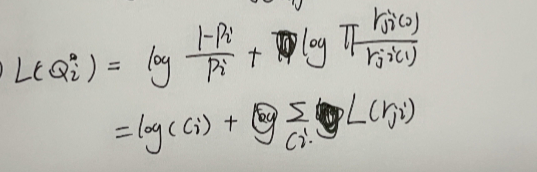 ) L(Qi) = log (1-Pi)/Pi + log π rji(0)/rji(1)
= log(Ci) + log Σ Ci L(rji)